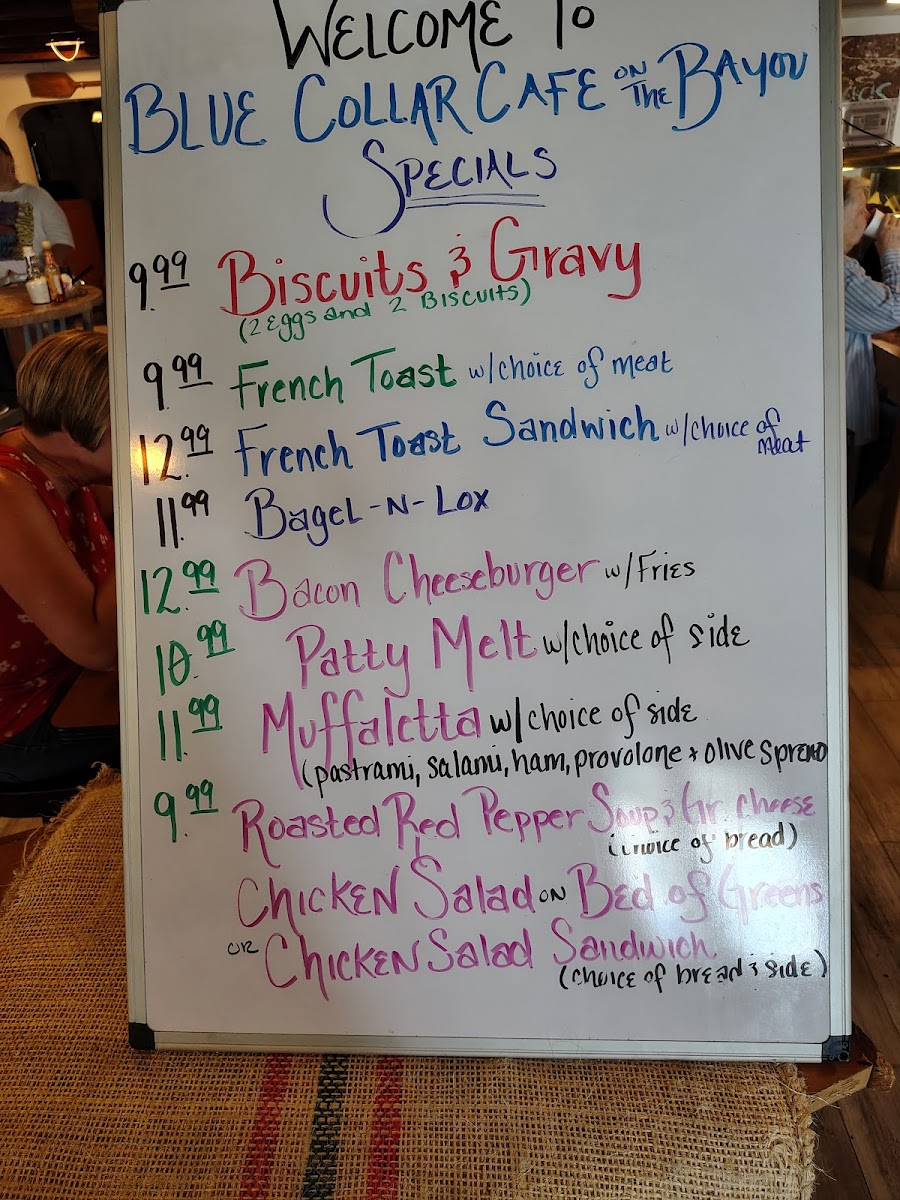 WELCOME TO
BLUE COLLAR CAFE ON THE BAYOU
SPECIALS
9.99 Biscuits & Gravy
(2 Eggs and 2 Biscuits)
9.99 French Toast w/choice of meat
12.99 French Toast Sandwich w/choice of meat
11.99 Bagel-N-Lox
12.99 Bacon Cheeseburger w/Fries
10.99 Patty Melt w/choice of side
11.99 Muffaletta w/choice of side
(pastrami, salami, ham, provolone + olive spread
9.99 Roasted Red Pepper Soup & Gr. Cheese
(choice of bread)
Chicken Salad on Bed of Greens
or Chicken Salad Sandwich
(choice of bread & side)